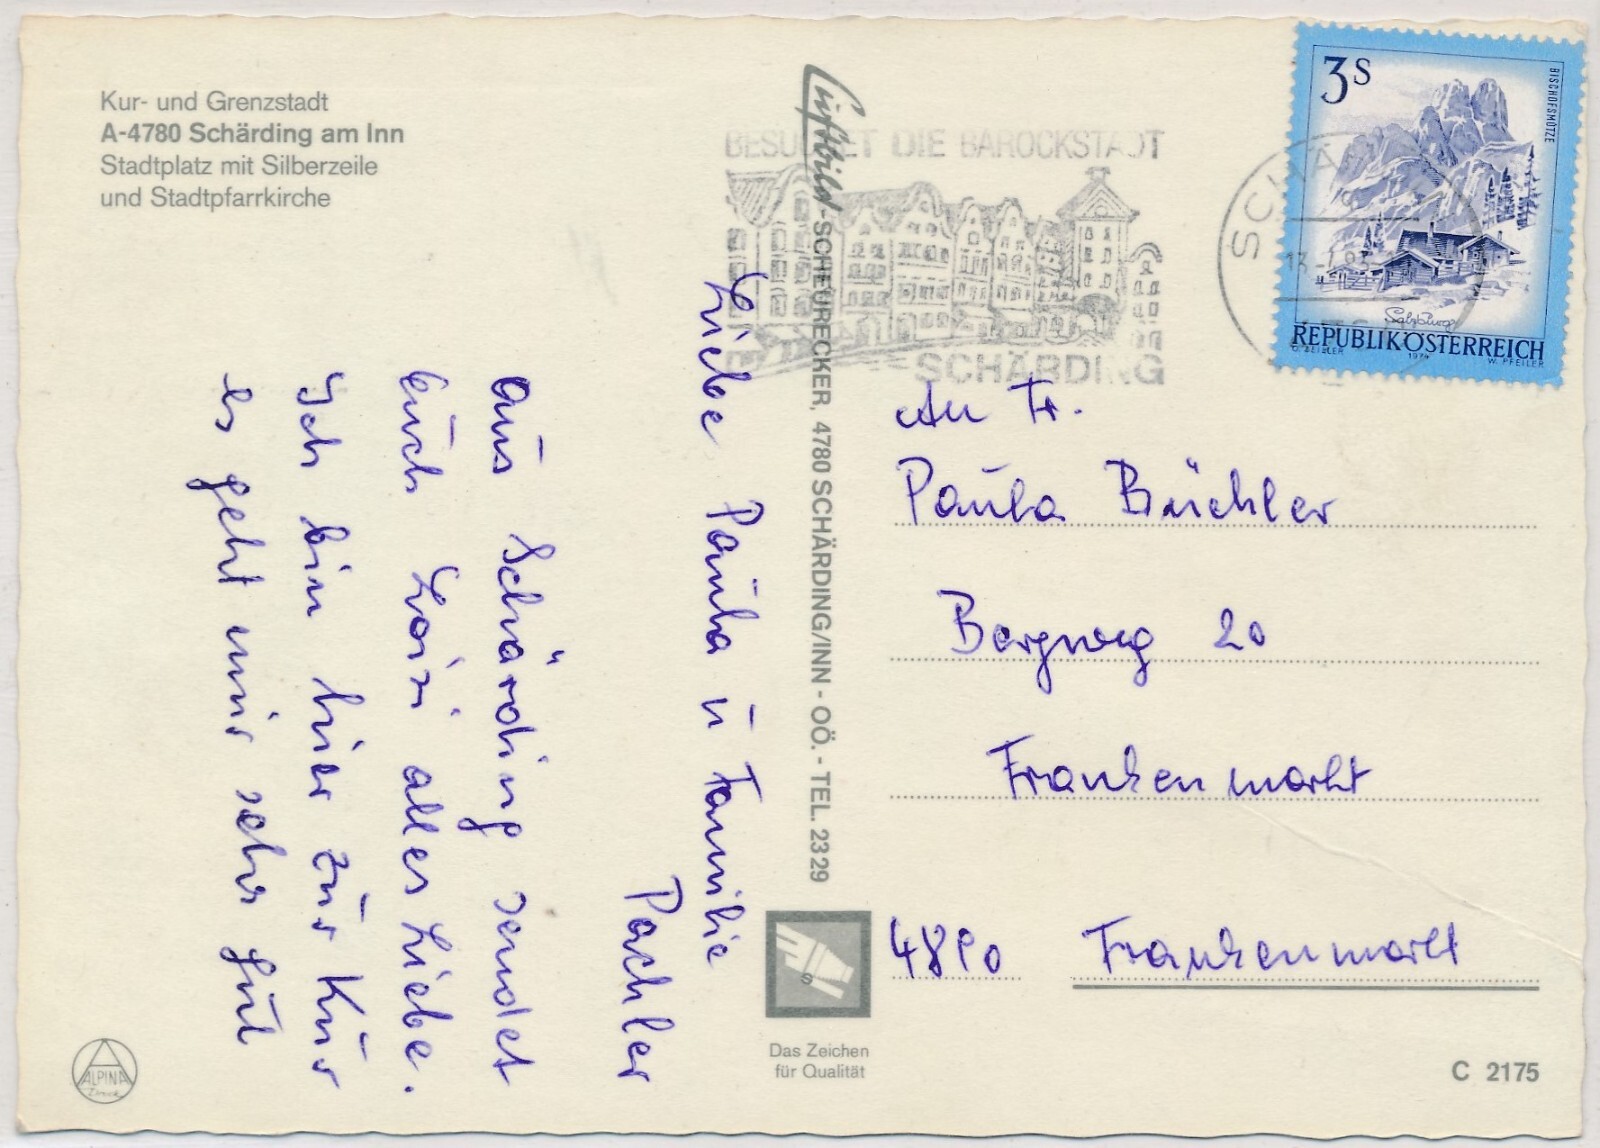 Kur- und Grenzstadt
A-4780 Schärding am Inn
Stadtplatz mit Silberzeile
und Stadtpfarrkirche
BESUCHET DIE BAROCKSTADT
SCHÄRDING
SCHÄR
13.-7.83-
3 S
BISCHOFSMÜTZE
Salzburg
REPUBLIK ÖSTERREICH
O. ZEILLER 1974 W. PFEILER
Luftbild-SCHEURECKER, 4780 SCHÄRDING/INN - OÖ. - TEL. 23 29
Liebe Paula u Familie
Pachler
aus Schärding sendet
Euch Loisi alles Liebe.
Ich bin hier zur Kur
es geht mir sehr gut
An Fr.
Paula Büchler
Bergweg 20
Frankenmarkt
4890 Frankenmarkt
Das Zeichen
für Qualität
ALPINA
Druck
C 2175